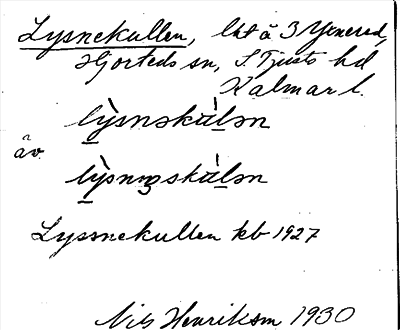 Lysnekullen, lht å 3 Yxnered,
Hjorteds sn, S Tjusts hd
Kalmar l.
lỳsnəkälən
äv
lỳsnıŋskälən
Lyssnekullen kb 1927
Nils Henrikson 1930